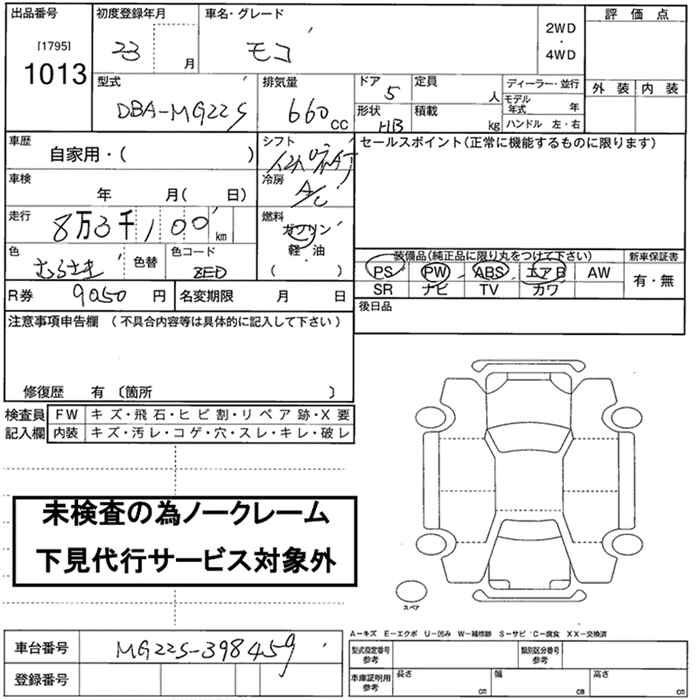 出品番号 初度登録年月 車名・グレード 評価点
[1795] 23 月 モコ 2WD・4WD
1013
型式 排気量 ドア 定員 ディーラー・並行 外装 内装
DBA-MG22S 660cc 5 人 モデル年式 年
形状 積載 ハンドル 左・右
HB kg
車歴 シフト セールスポイント(正常に機能するものに限ります)
自家用・( )
車検 冷房
年 月( 日) A/C
走行 燃料
8万3千100km ガソリン
軽・油
色 色替 色コード ( )
むらさき ZED
装備品(純正品に限り丸をつけて下さい) 新車保証書
PS PW ABS エアB AW 有・無
SR ナビ TV カワ
R券 9050円 名変期限 月 日 後日品
注意事項申告欄 (不具合内容等は具体的に記入して下さい)
修復歴 有 〔箇所 〕
検査員 FW キズ・飛石・ヒビ割・リペア跡・X要
記入欄 内装 キズ・汚レ・コゲ・穴・スレ・キレ・破レ
未検査の為ノークレーム
下見代行サービス対象外
スペア
A-キズ E-エクボ U-凹み W-補修跡 S-サビ C-腐食 XX-交換済
車台番号 MG22S-398459 型式指定番号 参考 類別区分番号 参考
登録番号 車庫証明用 参考 長さ cm 幅 cm 高さ cm